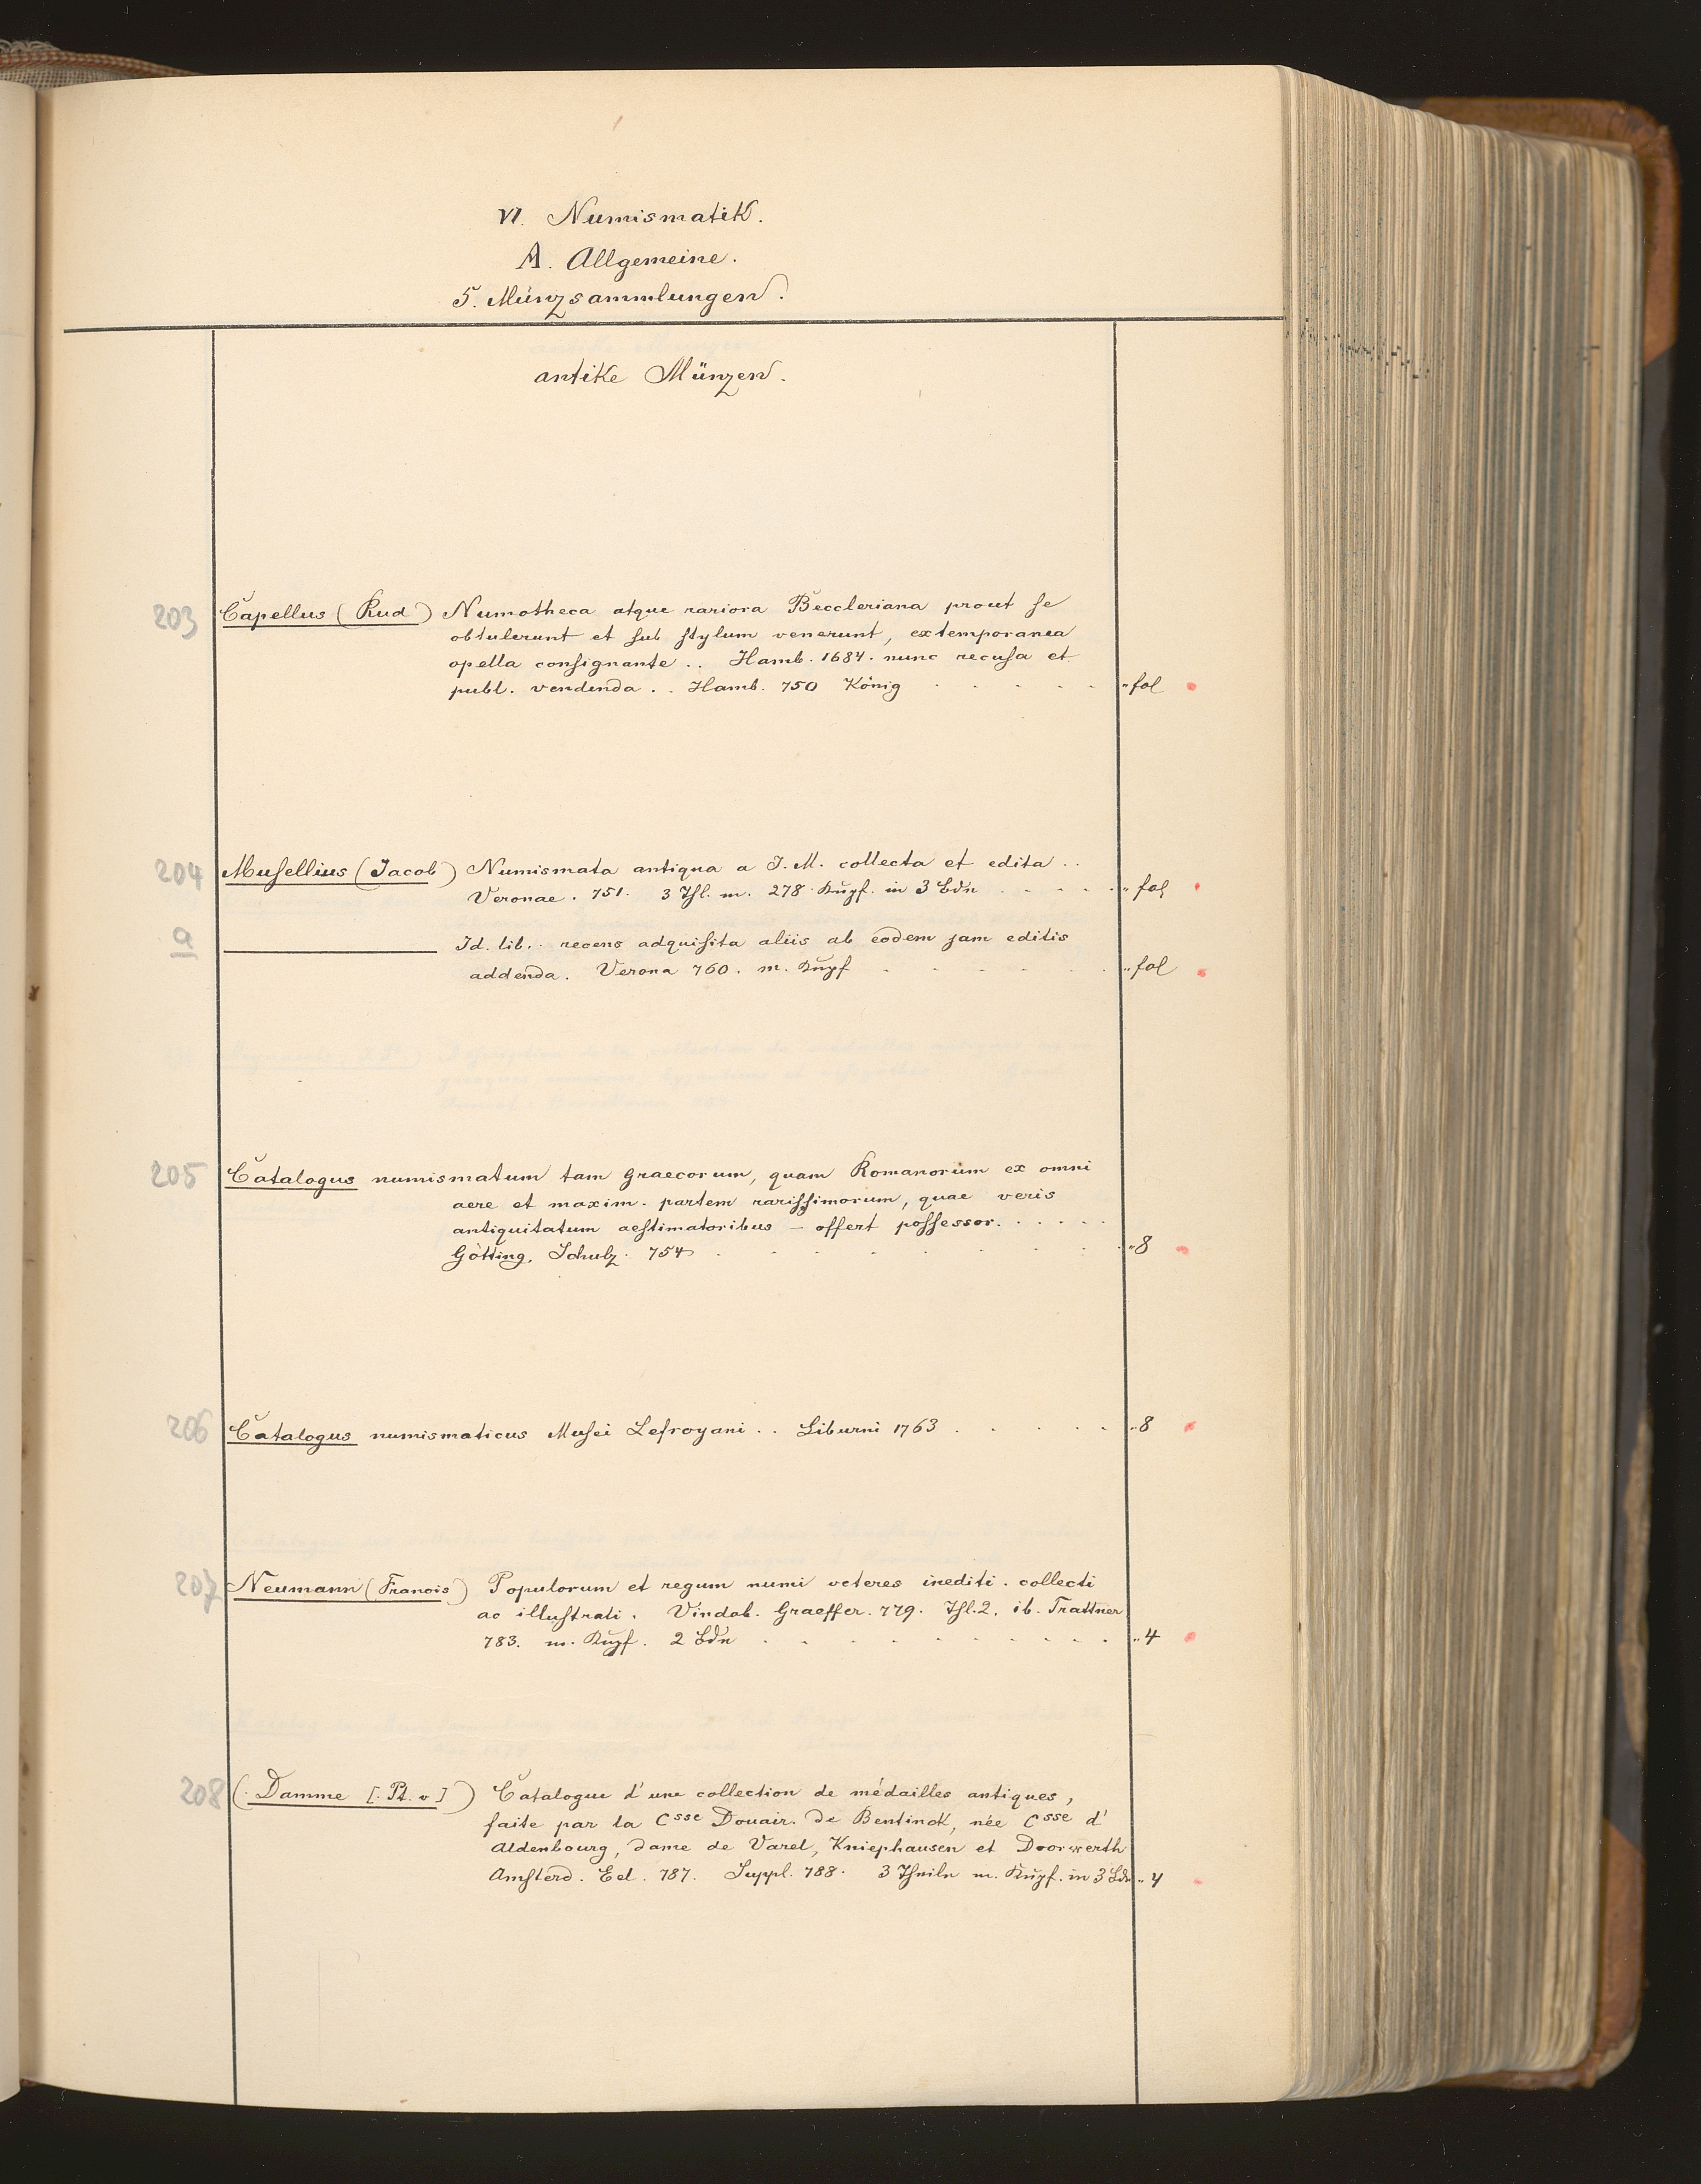 VI. Numismatik.
A. Allgemeine.
5. Münzsammlungen.
antike Münzen.
203 Capellus (Rud) Numotheca atque rariora Beccleriana prout se
obtulerunt et sub stylum venerunt, extemporanea
opella consignante .. Hamb. 1684. nunc recusa et
publ. vendenda .. Hamb. 750 König . . . . . „ fol
204 Musellius (Jacob) Numismata antiqua a J. M. collecta et edita ..
Veronae. 751. 3 Thl. m. 278 Kupf. in 3 Bdn . . . . „ fol
a ——— Id. lib. . recens adquisita aliis ab eodem jam editis
addenda. Verona 760. m. Kupf . . . . . . „ fol
205 Catalogus numismatum tam Graecorum, quam Romanorum ex omni
aere et maxim. partem rarissimorum, quae veris
antiquitatum aestimatoribus – offert possessor. . . . . .
Götting. Schulz. 754 . . . . . . . „ 8
206 Catalogus numismaticus Musei Lefroyani .. Liburni 1763 . . . . . „ 8
207 Neumann (Francis) Populorum et regum numi veteres inediti. collecti
ac illustrati. Vindob. Graeffer. 779. Thl. 2. ib. Trattner
783. m. Kupf. 2 Bdn . . . . . . . . . „ 4
208 (. Damme [. Pt. v ] ) Catalogue d'une collection de médailles antiques,
faite par la Csse Douair. de Bentinck, née Csse d'
Aldenbourg, dame de Varel, Kniephausen et Doorwerth
Amsterd. Eel. 787. Suppl. 788. 3 Theile m. Kupf. in 3 Bdn „ 4